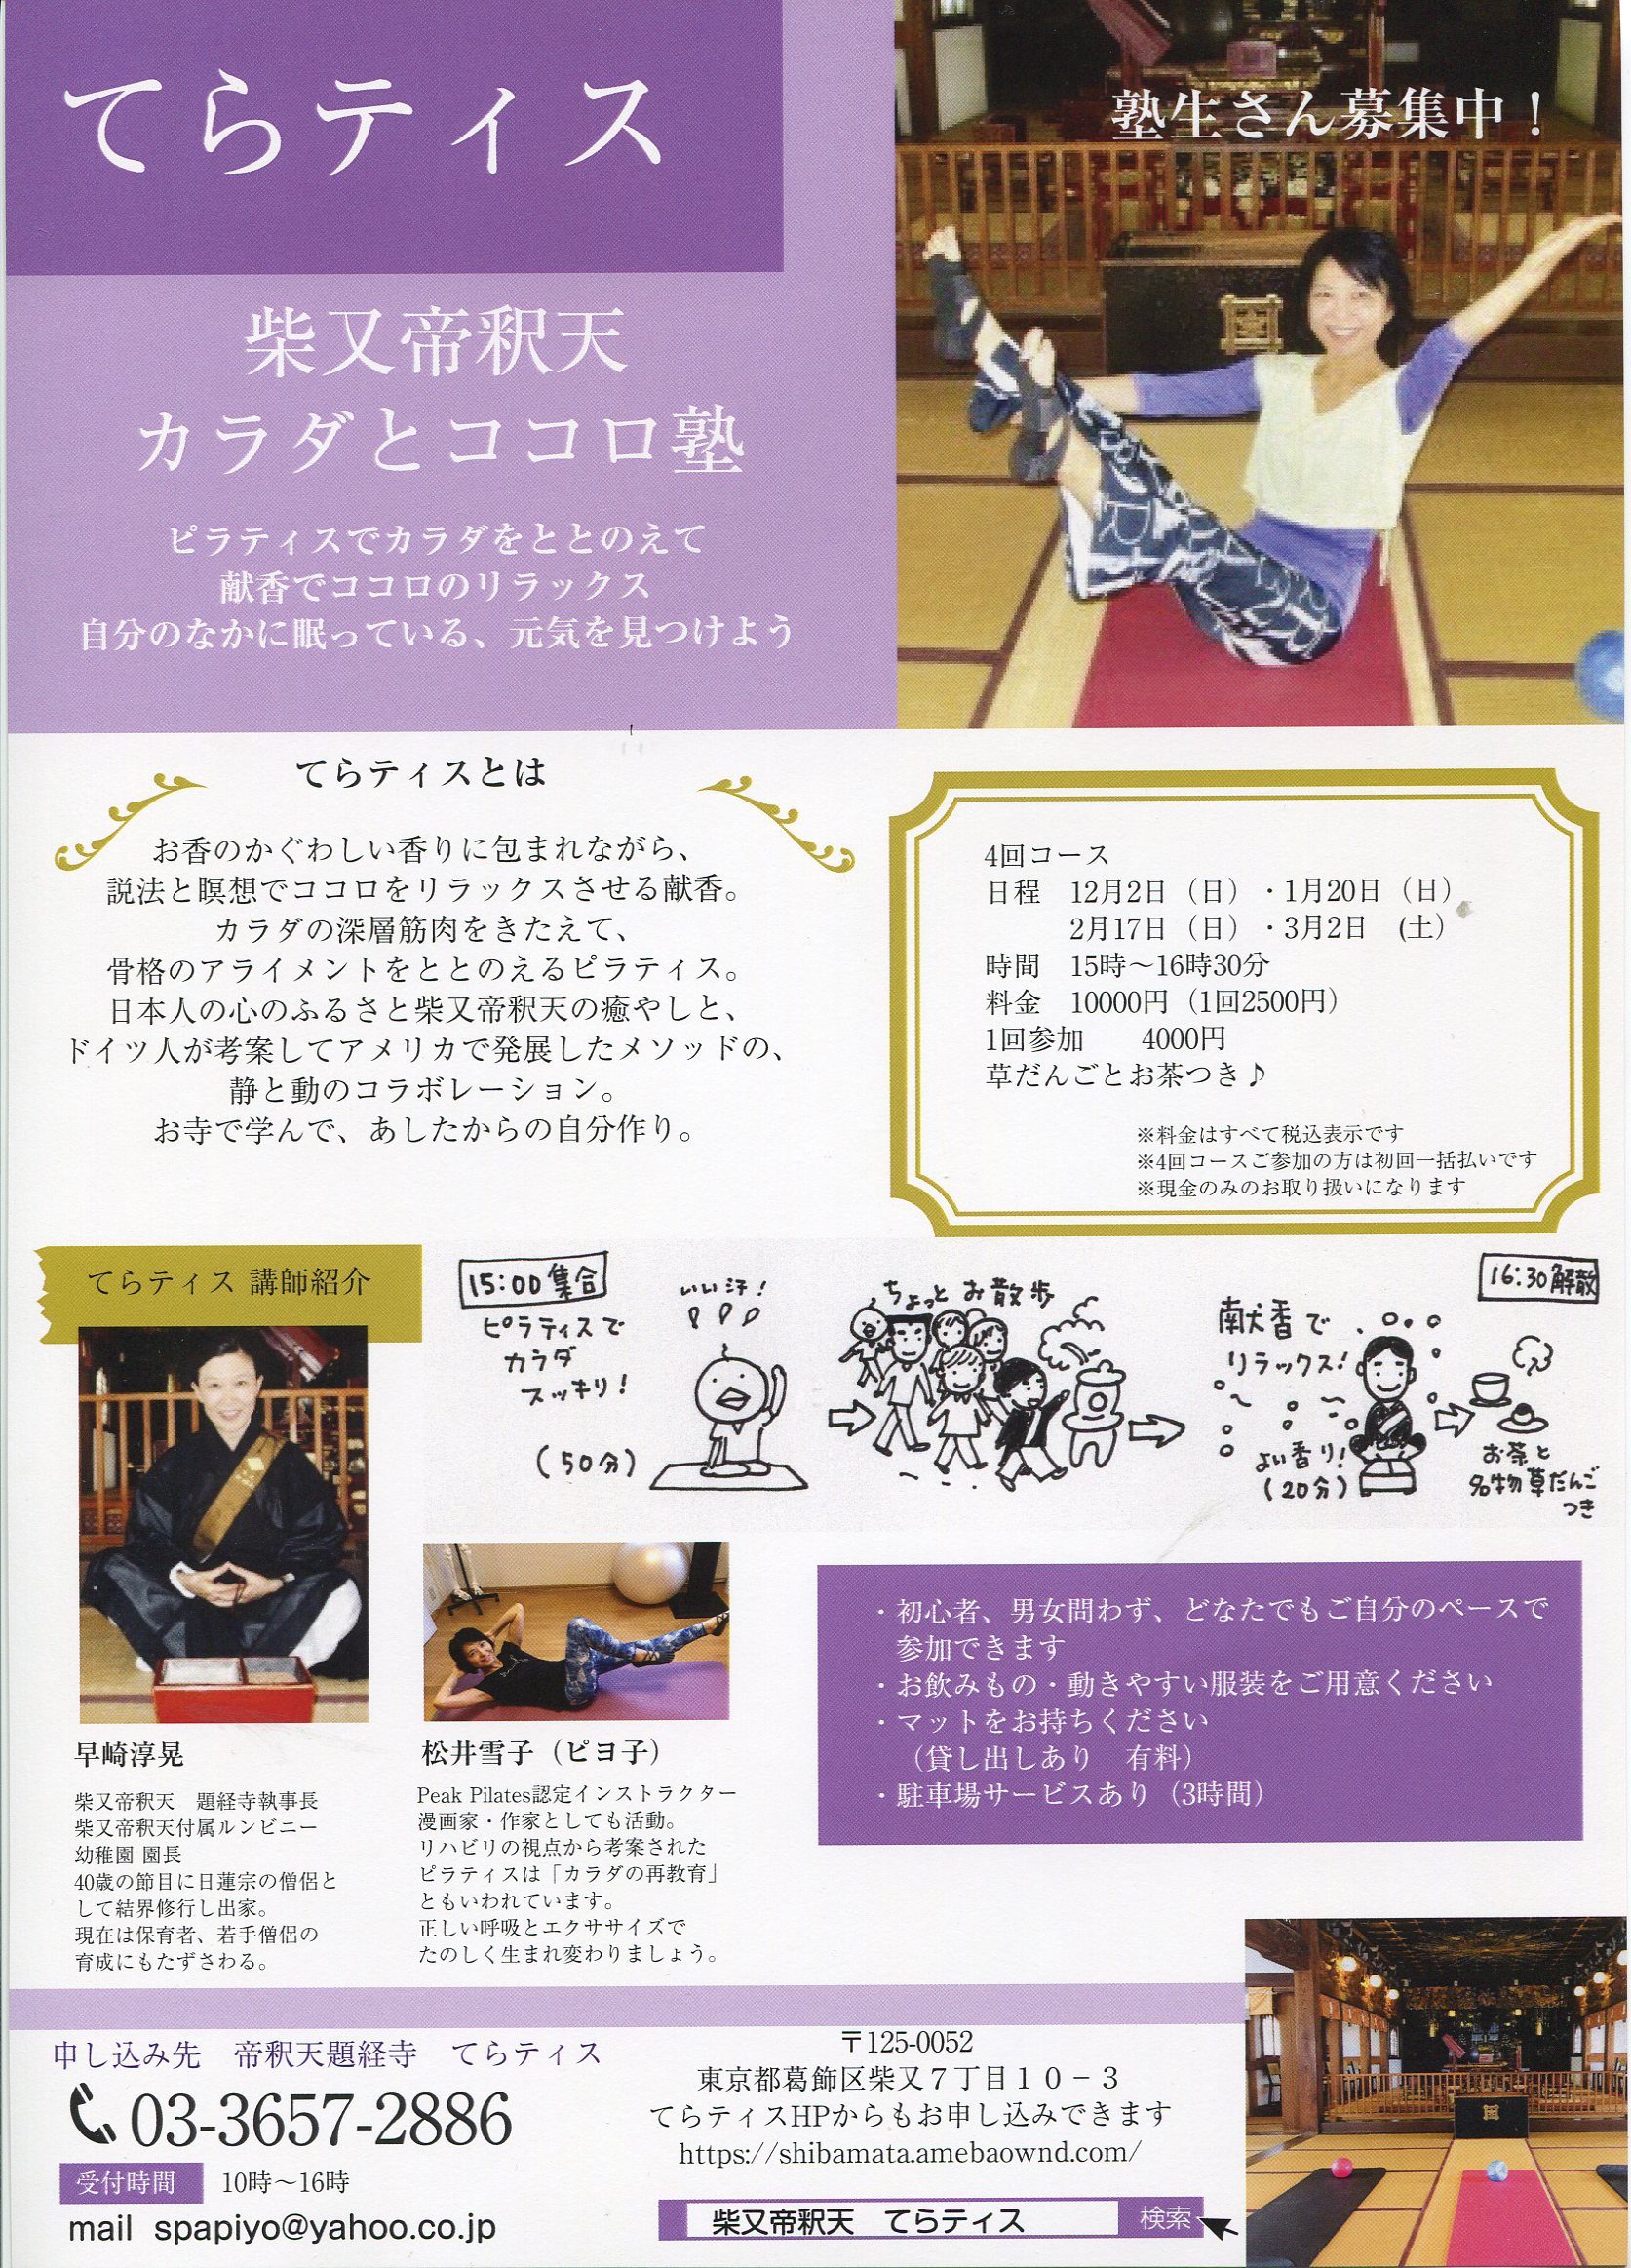 てらティス
塾生さん募集中！
柴又帝釈天
カラダとココロ塾
ピラティスでカラダをととのえて
献香でココロのリラックス
自分のなかに眠っている、元気を見つけよう
てらティスとは
お香のかぐわしい香りに包まれながら、
説法と瞑想でココロをリラックスさせる献香。
カラダの深層筋肉をきたえて、
骨格のアライメントをととのえるピラティス。
日本人の心のふるさと柴又帝釈天の癒やしと、
ドイツ人が考案してアメリカで発展したメソッドの、
静と動のコラボレーション。
お寺で学んで、あしたからの自分作り。
4回コース
日程　12月2日（日）・1月20日（日）
2月17日（日）・3月2日　(土）
時間　15時〜16時30分
料金　10000円（1回2500円）
1回参加　　4000円
草だんごとお茶つき♪
※料金はすべて税込表示です
※4回コースご参加の方は初回一括払いです
※現金のみのお取り扱いになります
てらティス 講師紹介
15:00 集合
ピラティスで
カラダ
スッキリ！
(50分)
いい汗！
ちょっとお散歩
献香で
リラックス！
よい香り！
(20分)
16:30 解散
お茶と
名物草だんご
つき
早崎淳晃
柴又帝釈天　題経寺執事長
柴又帝釈天付属ルンビニー
幼稚園 園長
40歳の節目に日蓮宗の僧侶と
して結界修行し出家。
現在は保育者、若手僧侶の
育成にもたずさわる。
松井雪子（ピヨ子）
Peak Pilates認定インストラクター
漫画家・作家としても活動。
リハビリの視点から考案された
ピラティスは「カラダの再教育」
ともいわれています。
正しい呼吸とエクササイズで
たのしく生まれ変わりましょう。
・初心者、男女問わず、どなたでもご自分のペースで
参加できます
・お飲みもの・動きやすい服装をご用意ください
・マットをお持ちください
（貸し出しあり　有料）
・駐車場サービスあり（3時間）
申し込み先　帝釈天題経寺　てらティス
03-3657-2886
受付時間　10時〜16時
mail spapiyo@yahoo.co.jp
〒125-0052
東京都葛飾区柴又７丁目１０－３
てらティスHPからもお申し込みできます
https://shibamata.amebaownd.com/
柴又帝釈天　てらティス　検索